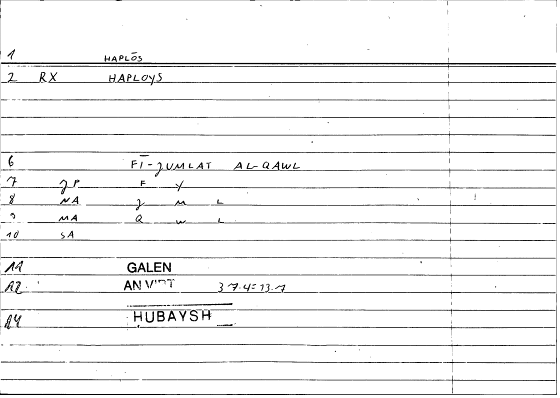 1 HAPLŌS
2 RX HAPLOYS
6 FĪ-JUMLAT AL-QAWL
7 JP F Y
8 NA J M L
9 MA Q W L
10 SA
11 GALEN
12 AN VIRT 3 7.4=13.1
14 HUBAYSH